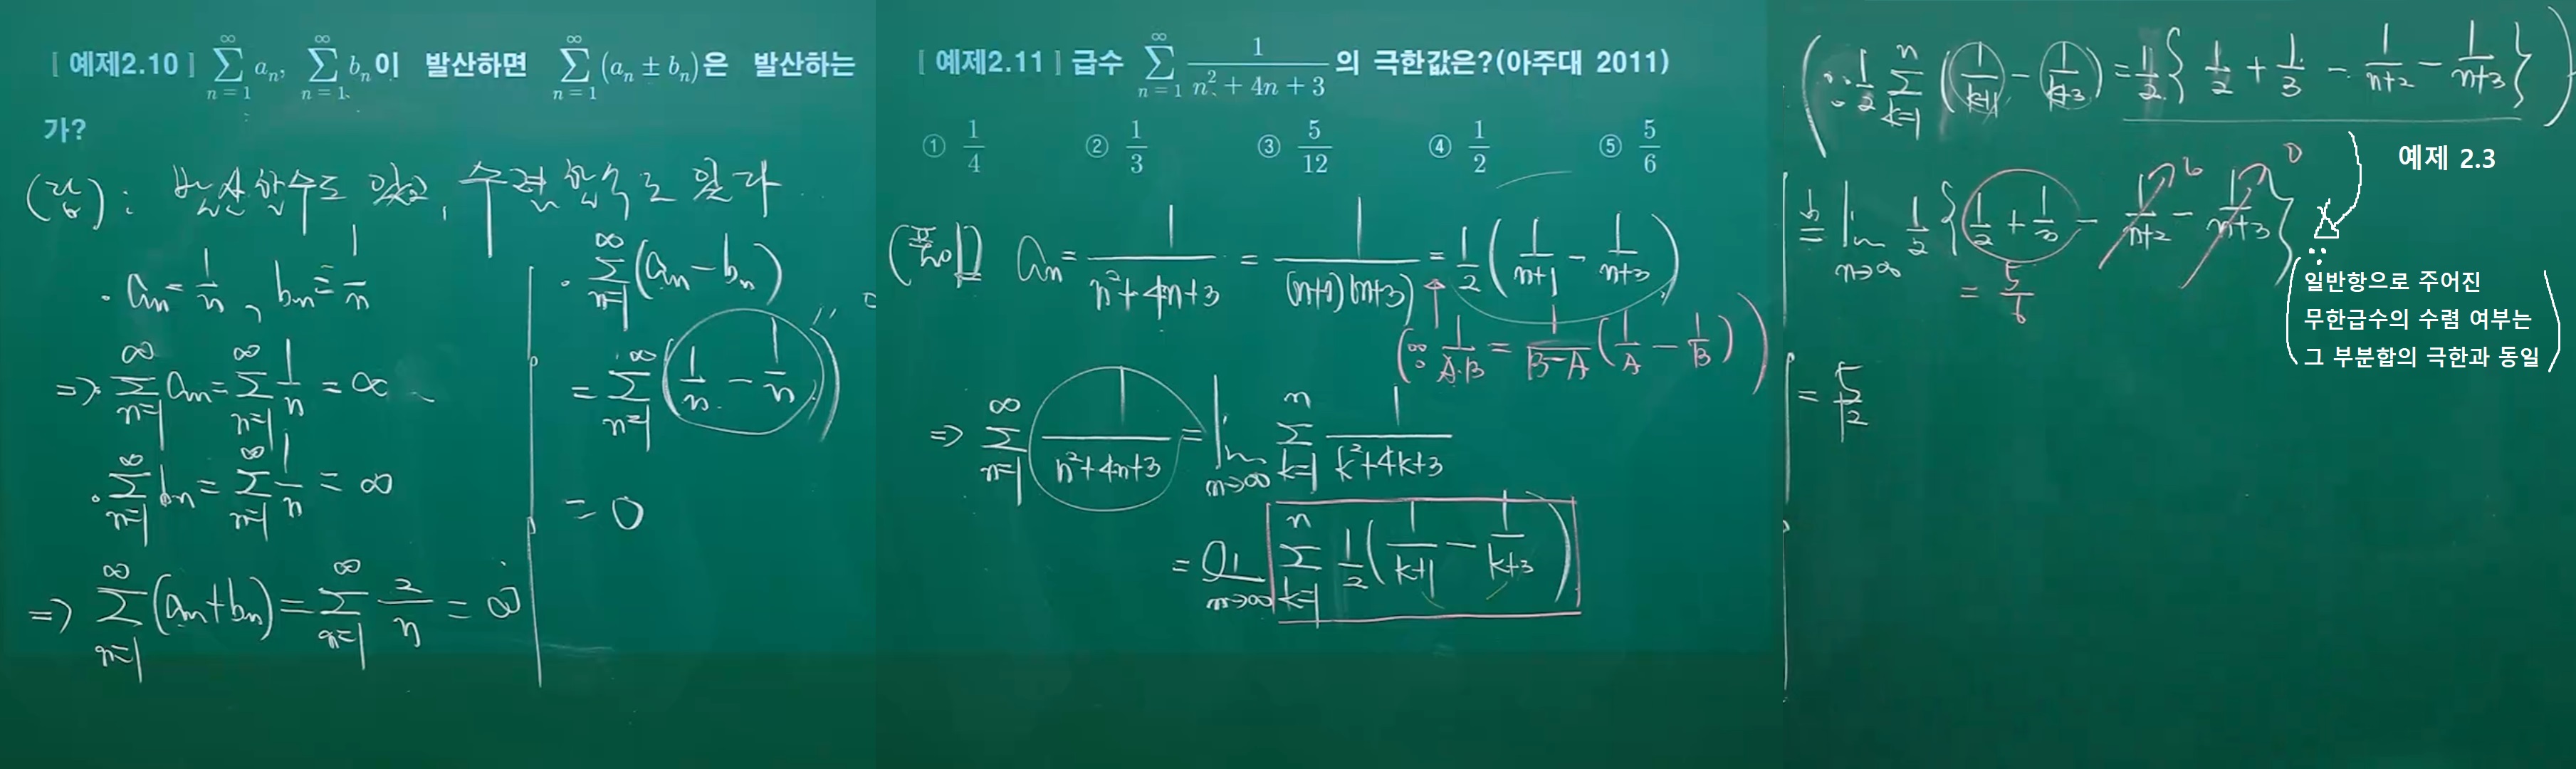 [ 예제2.10 ] ∑_{n=1}^{∞} a_n, ∑_{n=1}^{∞} b_n이 발산하면 ∑_{n=1}^{∞} (a_n ± b_n)은 발산하는
가?
(답) : 발산할수도 있고, 수렴할수도 있다.
· a_n = 1/n , b_n = 1/n
⇒ · ∑_{n=1}^{∞} a_n = ∑_{n=1}^{∞} 1/n = ∞
· ∑_{n=1}^{∞} b_n = ∑_{n=1}^{∞} 1/n = ∞
⇒ ∑_{n=1}^{∞} (a_n + b_n) = ∑_{n=1}^{∞} 2/n = ∞
· ∑_{n=1}^{∞} (a_n − b_n)
= ∑_{n=1}^{∞} (1/n − 1/n) 0
= 0
[ 예제2.11 ] 급수 ∑_{n=1}^{∞} 1/(n²+4n+3) 의 극한값은?(아주대 2011)
① 1/4 ② 1/3 ③ 5/12 ④ 1/2 ⑤ 5/6
(풀이) a_n = 1/(n²+4n+3) = 1/((n+1)(n+3)) = 1/2 (1/(n+1) − 1/(n+3))
(∵ 1/(A·B) = 1/(B−A) (1/A − 1/B))
⇒ ∑_{n=1}^{∞} 1/(n²+4n+3) = lim_{n→∞} ∑_{k=1}^{n} 1/(k²+4k+3)
= lim_{n→∞} ∑_{k=1}^{n} 1/2 (1/(k+1) − 1/(k+3))
(∵ 1/2 ∑_{k=1}^{n} (1/(k+1) − 1/(k+3)) = 1/2 { 1/2 + 1/3 − 1/(n+2) − 1/(n+3) })
예제 2.3
= lim_{n→∞} 1/2 { 1/2 + 1/3 − 1/(n+2) − 1/(n+3) } 0 0
= 5/6
= 5/12
∵
일반항으로 주어진
무한급수의 수렴 여부는
그 부분합의 극한과 동일